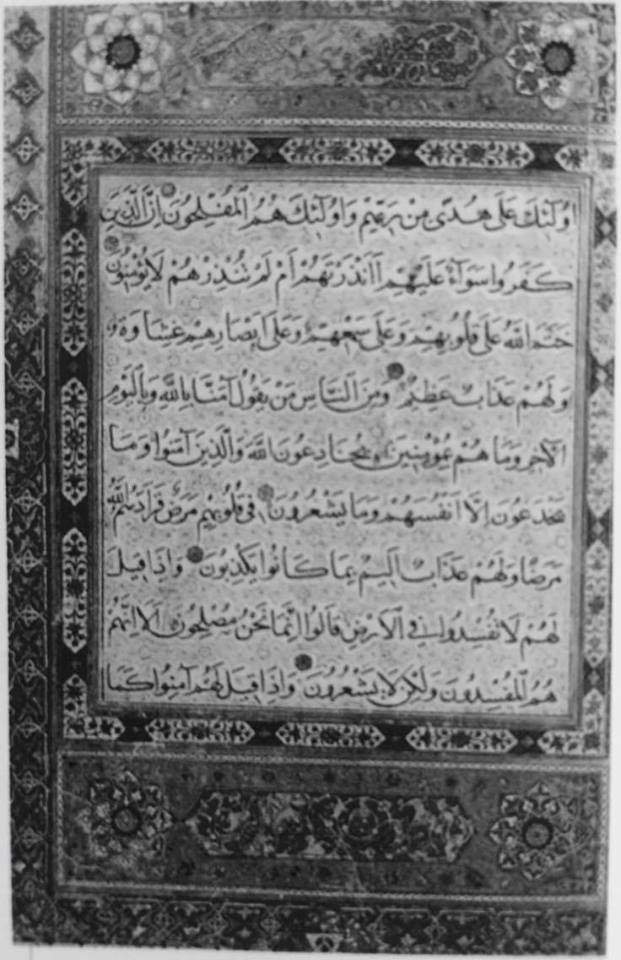 اُولٰئِكَ عَلٰى هُدًى مِنْ رَبِّهِمْ وَاُولٰئِكَ هُمُ الْمُفْلِحُونَ اِنَّ الَّذِينَ
كَفَرُوا سَوَآءٌ عَلَيْهِمْ أَاَنْذَرْتَهُمْ اَمْ لَمْ تُنْذِرْهُمْ لَا يُؤْمِنُونَ
خَتَمَ اللّٰهُ عَلٰى قُلُوبِهِمْ وَعَلٰى سَمْعِهِمْ وَعَلٰى اَبْصَارِهِمْ غِشَاوَةٌ
وَلَهُمْ عَذَابٌ عَظِيمٌ وَمِنَ النَّاسِ مَنْ يَقُولُ آمَنَّا بِاللّٰهِ وَبِالْيَوْمِ
الْآخِرِ وَمَا هُمْ بِمُؤْمِنِينَ يُخَادِعُونَ اللّٰهَ وَالَّذِينَ آمَنُوا وَمَا
يَخْدَعُونَ اِلَّا اَنْفُسَهُمْ وَمَا يَشْعُرُونَ فِى قُلُوبِهِمْ مَرَضٌ فَزَادَهُمُ اللّٰهُ
مَرَضًا وَلَهُمْ عَذَابٌ اَلِيمٌ بِمَا كَانُوا يَكْذِبُونَ وَاِذَا قِيلَ
لَهُمْ لَا تُفْسِدُوا فِى الْاَرْضِ قَالُوا اِنَّمَا نَحْنُ مُصْلِحُونَ اَلَا اِنَّهُمْ
هُمُ الْمُفْسِدُونَ وَلٰكِنْ لَا يَشْعُرُونَ وَاِذَا قِيلَ لَهُمْ آمِنُوا كَمَا